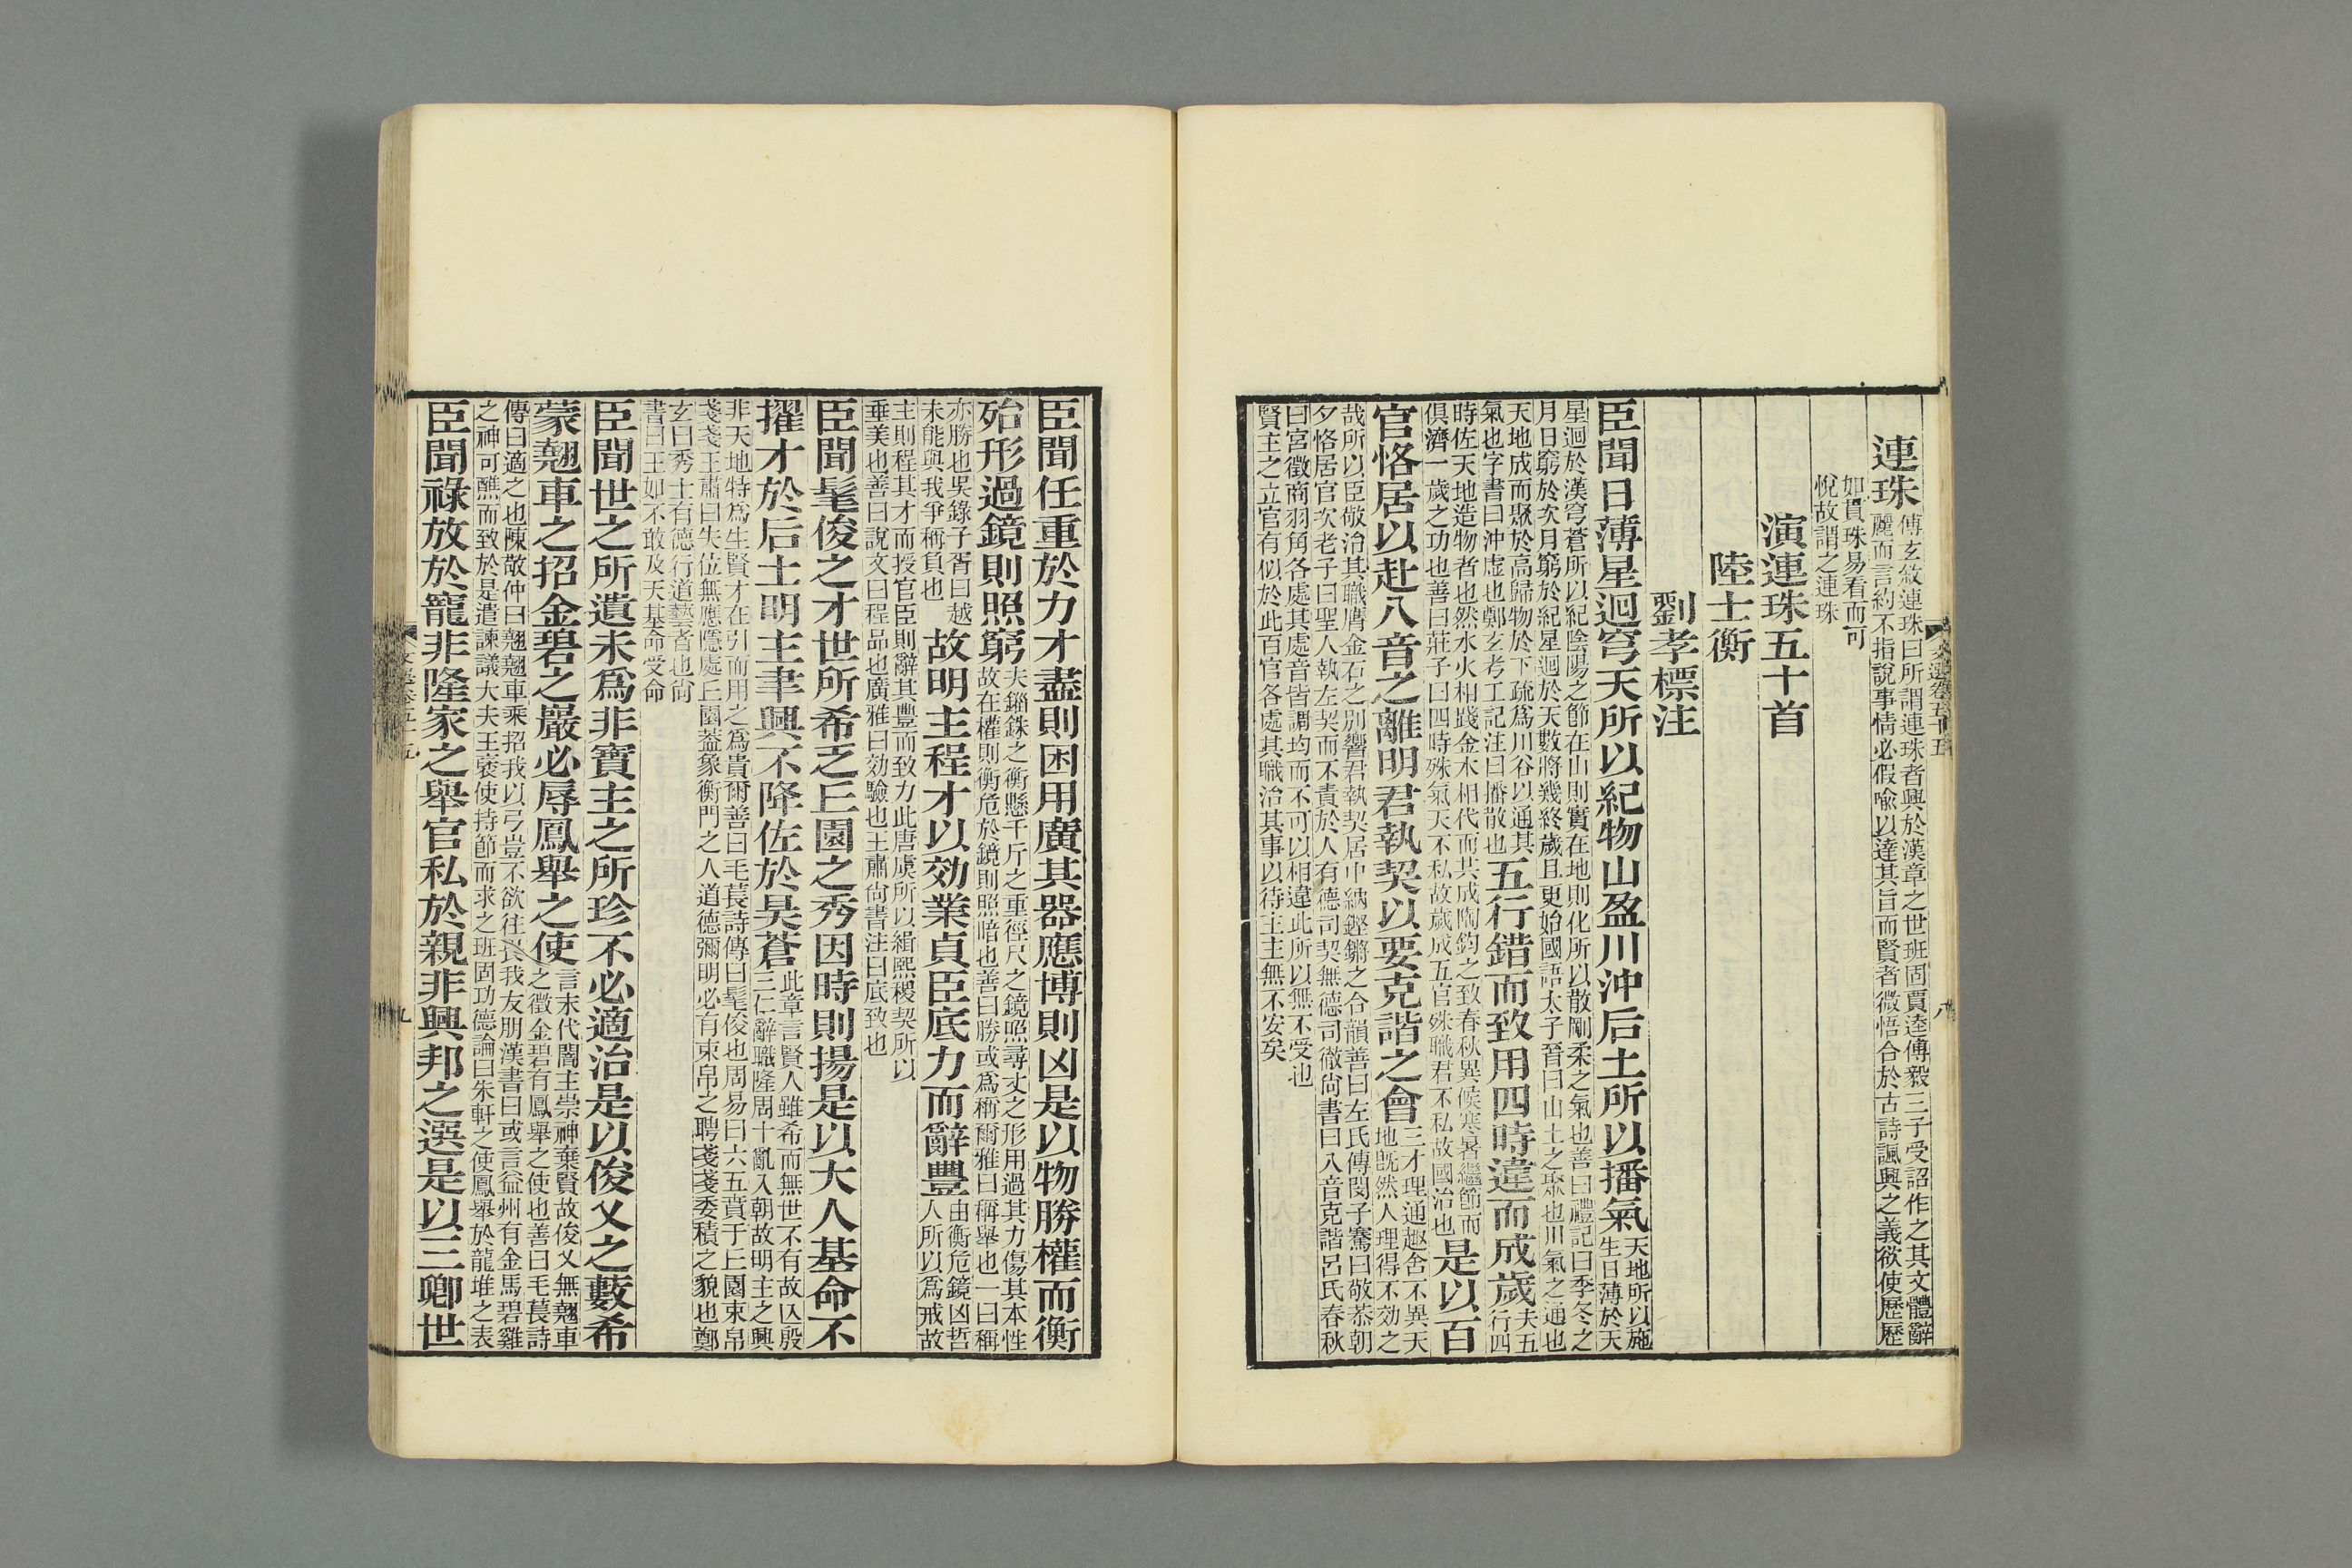 連珠傅玄敘連珠曰所謂連珠者興於漢章之世班固賈逵傅毅三子受詔作之其文體辭
麗而言約不指說事情必假喩以達其旨而賢者微悟合於古詩諷興之義欲使歷歷
如貫珠易看而可
悅故謂之連珠
演連珠五十首
陸士衡
劉孝標注
臣聞日薄星迴穹天所以紀物山盈川沖后土所以播氣天地所以施
生日薄於天
星迴於漢穹蒼所以紀陰陽之節在山則實在地則化所以散剛柔之氣也善曰禮記曰季冬之
月日窮於次月窮於紀星迴於天數將幾終歲且更始國語太子晉曰山土之聚也川氣之通也
天地成而聚於高歸物於下疏爲川谷以通其
氣也字書曰沖虛也鄭玄考工記注曰播散也
五行錯而致用四時違而成歲夫五
行四
時佐天地造物者也然水火相踐金木相代而共成陶鈞之致春秋異候寒暑繼節而
俱濟一歲之功也善曰莊子曰四時殊氣天不私故歲成五官殊職君不私故國治也
是以百
官恪居以赴八音之離明君執契以要克諧之會三才理通趣舍不異天
地旣然人理得不効之
哉所以臣敬治其職膺金石之別響君執契居中納鏗鏘之合韻善曰左氏傳閔子騫曰敬恭朝
夕恪居官次老子曰聖人執左契而不責於人有德司契無德司徹尙書曰八音克諧呂氏春秋
曰宮徵商羽角各處其處音皆調均而不可以相違此所以無不受也
賢主之立官有似於此百官各處其職治其事以待主主無不安矣
文選卷五十五
八
臣聞任重於力才盡則困用廣其器應博則凶是以物勝權而衡
殆形過鏡則照窮夫錙銖之衡懸千斤之重徑尺之鏡照尋丈之形用過其力傷其本性
故在權則衡危於鏡則照暗也善曰勝或爲稱爾雅曰稱舉也一曰稱
亦勝也吳錄子胥曰越
未能與我爭稱負也
故明主程才以効業貞臣底力而辭豐由衡危鏡凶哲
人所以爲戒故
主則程其才而授官臣則辭其豐而致力此唐虞所以緝熙稷契所以
垂美也善曰說文曰程品也廣雅曰効驗也王肅尙書注曰底致也
臣聞髦俊之才世所希乏丘園之秀因時則揚是以大人基命不
擢才於后土明主聿興不降佐於昊蒼此章言賢人雖希而無世不有故亾殷
三仁辭職隆周十亂入朝故明主之興
非天地特爲生賢才在引而用之爲貴爾善曰毛萇詩傳曰髦俊也周易曰六五賁于丘園束帛
戔戔王肅曰失位無應隱處丘園蓋象衡門之人道德彌明必有束帛之聘戔戔委積之貌也鄭
玄曰秀士有德行道藝者也尙
書曰王如不敢及天基命受命
臣聞世之所遺未爲非寶主之所珍不必適治是以俊乂之藪希
蒙翹車之招金碧之巖必辱鳳舉之使言末代闇主崇神棄賢故俊乂無翹車
之徵金碧有鳳舉之使也善曰毛萇詩
傳曰適之也陳敬仲曰翹翹車乘招我以弓豈不欲往畏我友朋漢書曰或言益州有金馬碧雞
之神可醮而致於是遣諫議大夫王褒使持節而求之班固功德論曰朱軒之使鳳舉於龍堆之表
臣聞祿放於寵非隆家之舉官私於親非興邦之選是以三卿世
九